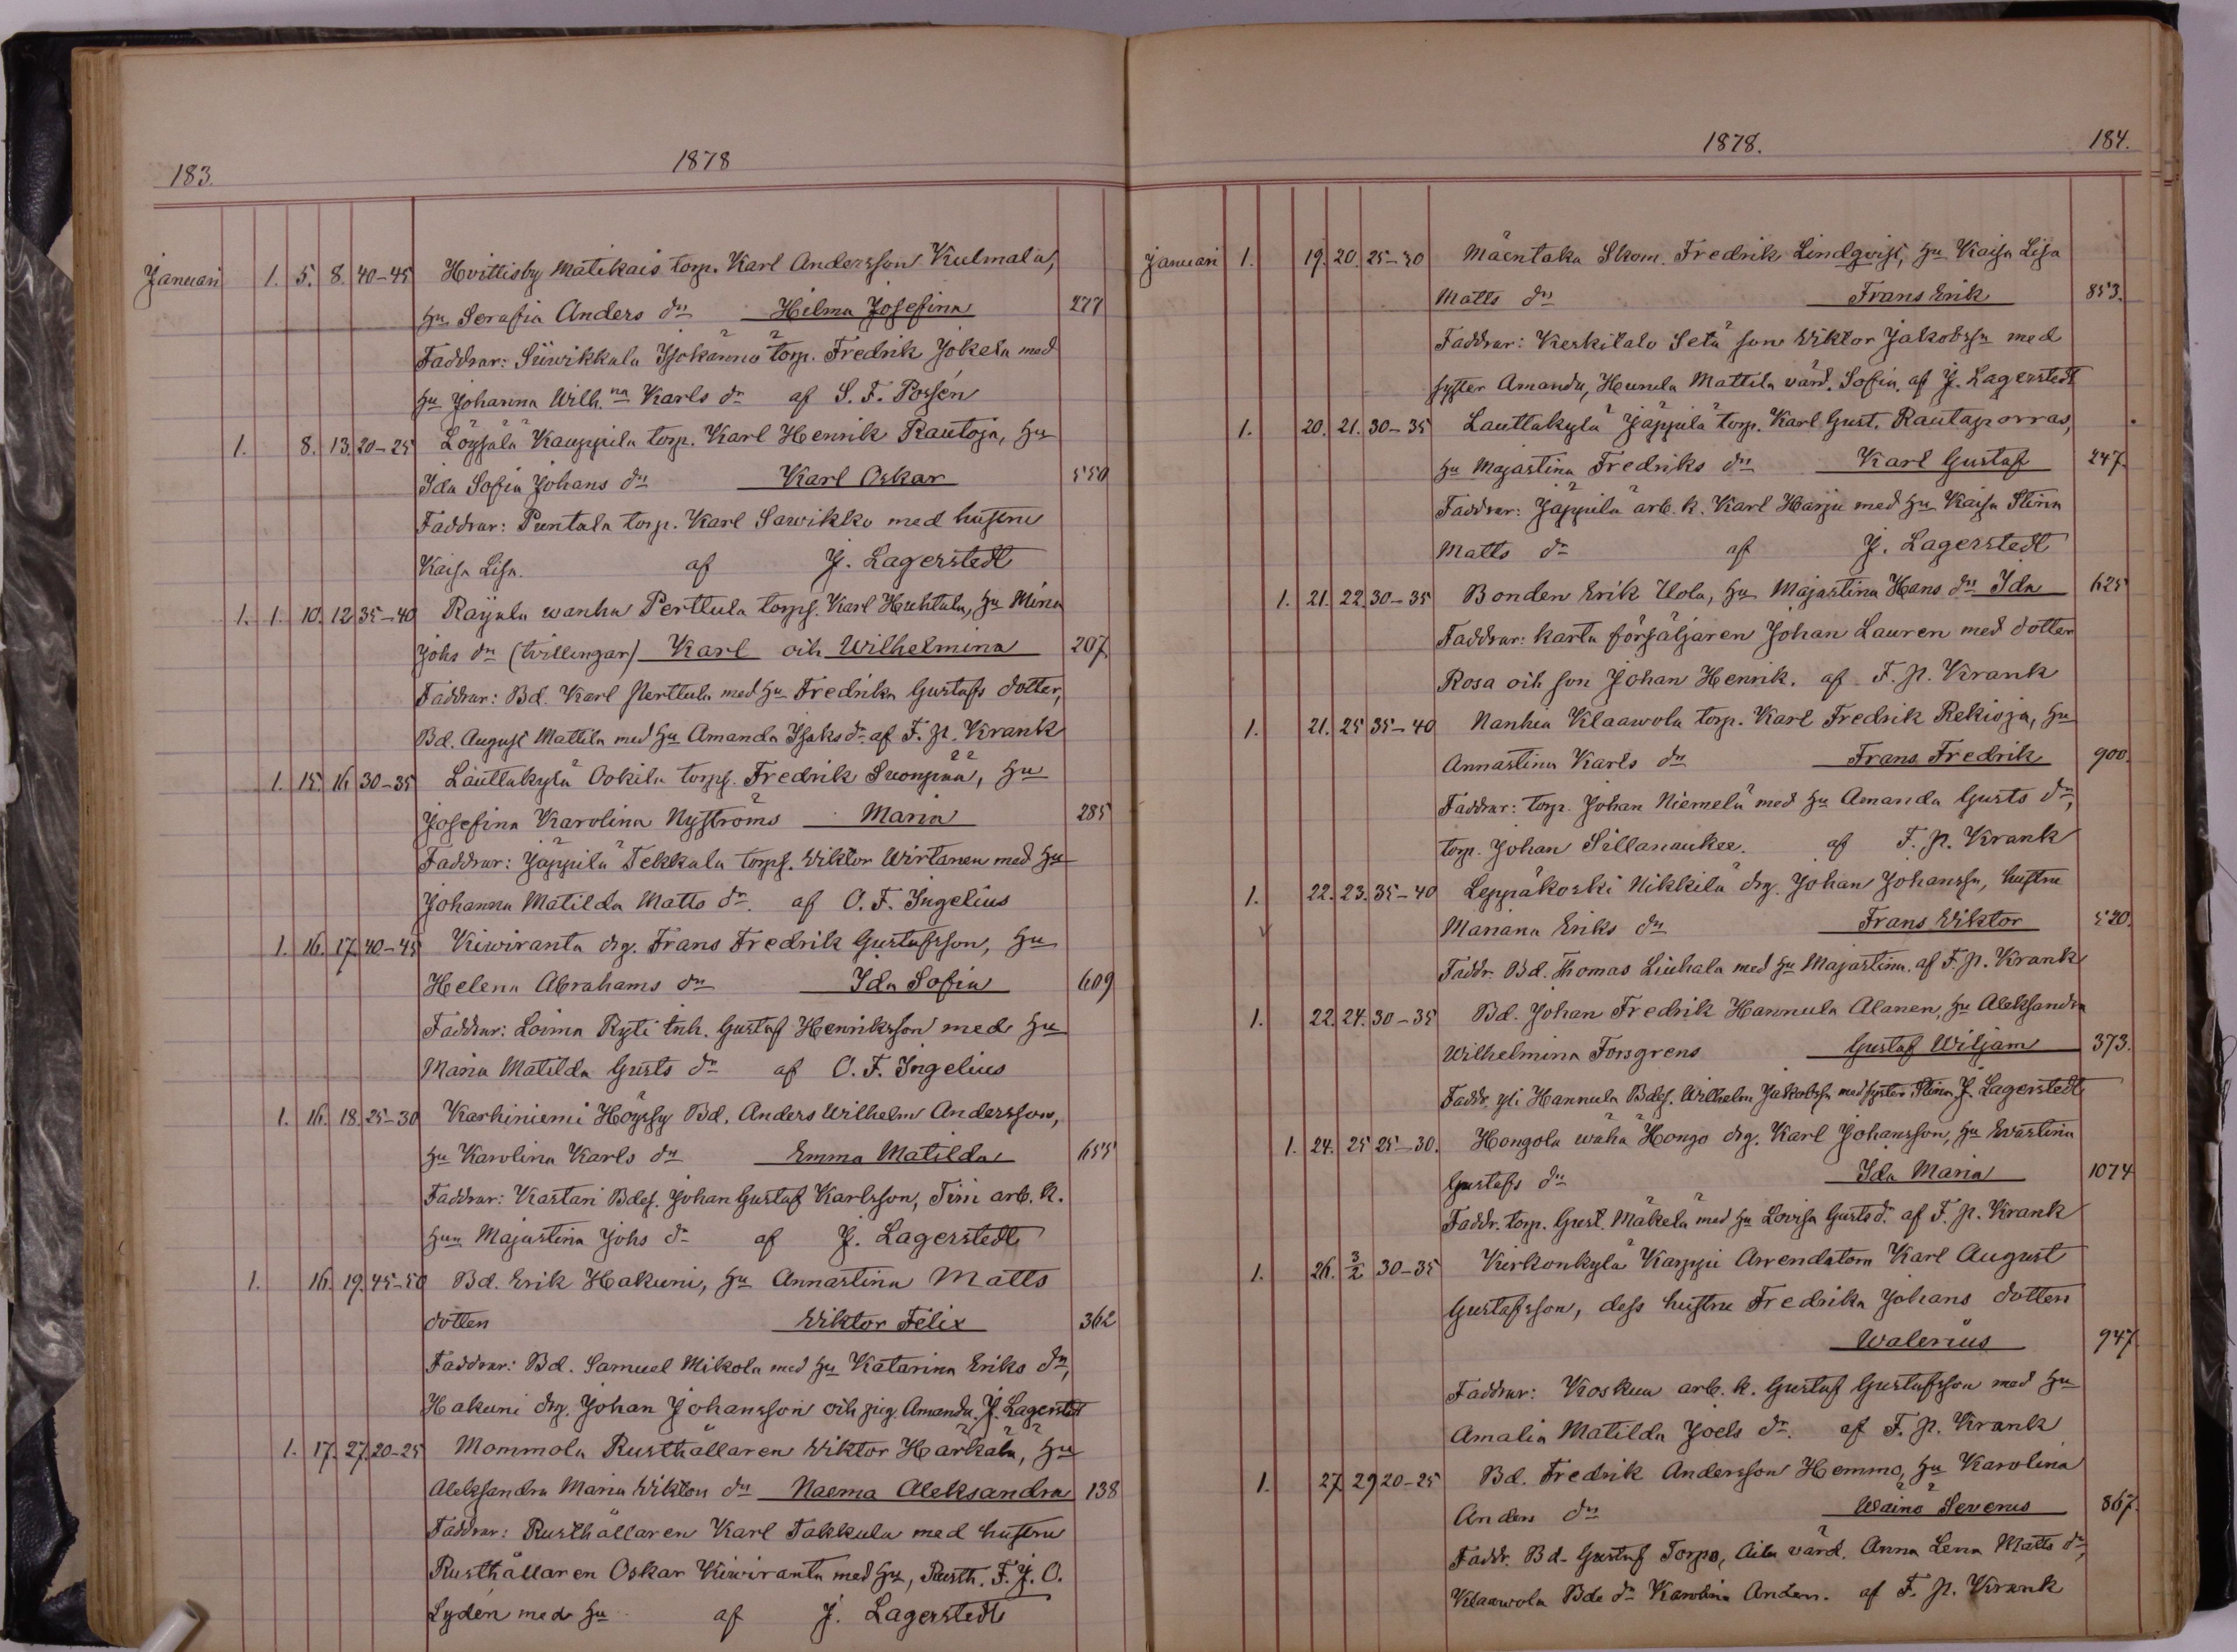 183.
1878
Januari 1. 5. 8. 40-45 Hvittisby Matikais torp. Karl Andersson Kulmala,
hu Serafia Anders dr Hilma Josefina 277
Faddrar: Siiwikkala torp. Fredrik Jokela med
hu Johanna Wilh.na Karls dr af S. F. Possén
1. 8. 13. 20-25 Löysälä Kauppila torp. Karl Henrik Rautoja, hu
Ida Sofia Johans dr Karl Oskar 550
Faddrar: Puntala torp. Karl Sawikko med hustru
Kaisa Lisa. af J. Lagerstedt
1. 1. 10. 12 35-40 Raijala wanha Perttula torps. Karl Huhtala, hu Mina
Johs dr (tvillingar) Karl och Wilhelmina 207.
Faddrar: Bd. Karl Perttula med hu Fredrika Gustafs dotter,
Bd. August Mattila med hu Amanda Isaks dr. af F. p. Krank
1. 15. 16. 30-35 Lauttakylä Ookila torps. Fredrik Suonpää, hu
Josefina Karolina Nyströms Maria 285
Faddrar: Jäppilä Tekkala torps. Wiktor Wirtanen med hu
Johanna Matilda Matts dr. af O. F. Ingelius
1. 16. 17. 40-45 Kiwiranta drg. Frans Fredrik Gustafsson, hu
Helena Abrahams dr Ida Sofia 609
Faddrar: Loima Ryti inh. Gustaf Henriksson med hu
Maria Matilda Gusts dr af O. F. Ingelius
1. 16. 18. 25-30 Karhiniemi Höyssy Bd. Anders Wilhelm Andersson,
hu Karolina Karls dr Emma Matilda 655
Faddrar: Kastari Bdes. Johan Gustaf Karlsson, Tiiri arb. k.
hun Majastina Johs dr af J. Lagerstedt
1. 16. 19. 45-50 Bd. Erik Hakuni, hu Annastina Matts
dotter Wiktor Felix 362
Faddrar: Bd. Samuel Mikola med hu Katarina Eriks dr,
Hakuni drg. Johan Johansson och pig. Amanda. J. Lagerstedt
1. 17. 27. 20-25 Mommola Rusthållaren Wiktor Härkälä, hu
Aleksandra Maria Wiktors dr Naema Aleksandra 138
Faddrar: Rusthållaren Karl Takkula med hustru
Rusthållaren Oskar Kiwiranta med hu, Rusth. F. J. O.
Lydén med hu af J. Lagerstedt
1878.
184.
Januari 1. 19. 20. 25-30 Mäentaka Skom. Fredrik Lindqvist, hu Kaisa Lisa
Matts dr Frans Erik 853.
Faddrar: Keskitalo Setä son Wiktor Jakobssn med
syster Amanda, Hunula Mattila värd. Sofia. af J. Lagerstedt
1. 20. 21. 30-35 Lauttakylä Jäppilä torp. Karl Gust. Rautaporras,
hu Majastina Fredriks dr Karl Gustaf 247.
Faddrar: Jäppilä arb. k. Karl Harju med hu Kaisa Stina
Matts dr af J. Lagerstedt
1. 21. 22. 30-35 Bonden Erik Uola, hu Majastina Hans dr Ida 625
Faddrar: karta försäljaren Johan Lauren med dotter
Rosa och son Johan Henrik. af F. p. Krank
1. 21. 25 35-40 Nanhia Klaawola torp. Karl Fredrik Rekioja, hu
Annastina Karls dr Frans Fredrik 900.
Faddrar: torp. Johan Niemelä med hu Amanda Gusts dr,
torp. Johan Sillanaukee. af F. p. Krank
1. 22. 23. 35-40 Leppäkoski Nikkilä drg. Johan Johanssn, hustru
Mariana Eriks dr Frans Wiktor 520.
Faddr. Bd. Thomas Liuhala med hu Majastina. af F. p. Krank
1. 22. 24. 30-35 Bd. Johan Fredrik Hannula Alanen, hu Aleksandra
Wilhelmina Forsgrens Gustaf Wiljam 373.
Faddr. yli Hannula Bdes. Wilhelm Jakobssn med syster Stina J. Lagerstedt
1. 24. 25 25-30. Hongola wähä Hongo drg. Karl Johansson, hu Evastina
Gustafs dr Ida Maria 1074
Faddr. torp. Gust. Mäkelä med hu Lovisa Gusts d. af F. p. Krank
1. 26. 3/2 30-35 Kirkonkylä Karppi Arrendatorn Karl August
Gustafsson, dess hustru Fredrika Johans dotter
Walerius 947.
Faddrar: Koskua arb. k. Gustaf Gustafsson med hu
Amalia Matilda Joels dr. af F. p. Krank
1. 27 29 20-25 Bd. Fredrik Andersson Hemmo, hu Karolina
Anders dr Wäinö Severus 867.
Faddr. Bd. Gustaf Torpo, Aila värd. Anna Lena Matts dr,
Klaawola Bde dr Karolina Anders. af F. p. Krank